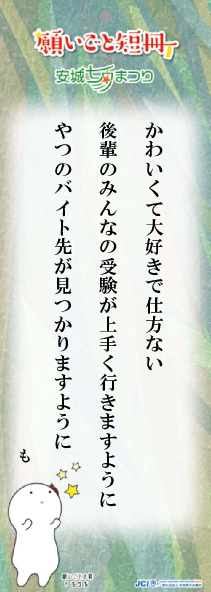 願いごと短冊
安城七夕まつり
かわいくて大好きで仕方ない
後輩のみんなの受験が上手く行きますように
やつのバイト先が見つかりますように
も
JCI